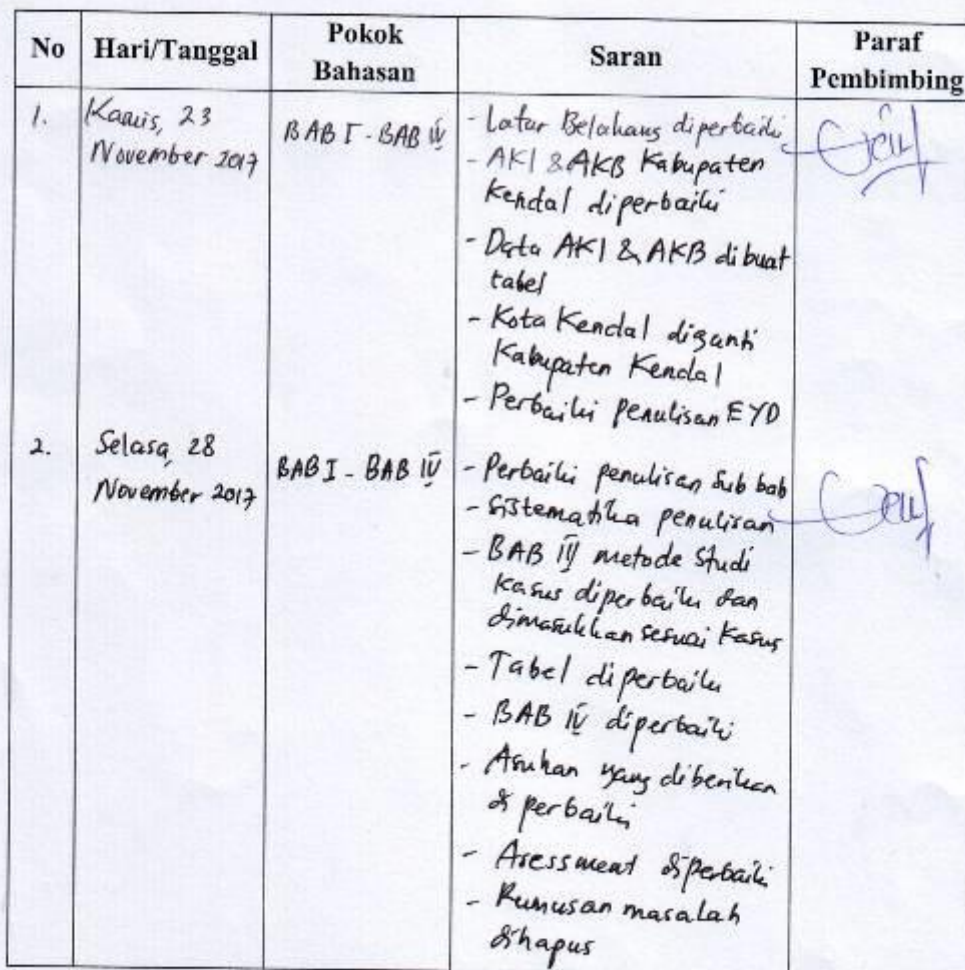 No Hari/Tanggal Pokok Bahasan Saran Paraf Pembimbing
1. Kamis, 23 November 2017
BAB I - BAB IV
- Latar Belakang diperbaiki
- AKI & AKB Kabupaten
Kendal diperbaiki
- Data AKI & AKB dibuat
tabel
- Kota Kendal diganti
Kabupaten Kendal
- Perbaiki penulisan EYD
2. Selasa, 28 November 2017
BAB I - BAB IV
- Perbaiki penulisan Sub bab
- sistematika penulisan
- BAB IV metode Studi
Kasus diperbaiki dan
dimasukkan sesuai Kasus
- Tabel diperbaiki
- BAB IV diperbaiki
- Asuhan yang diberikan
diperbaiki
- Asessment diperbaiki
- Rumusan masalah
dihapus